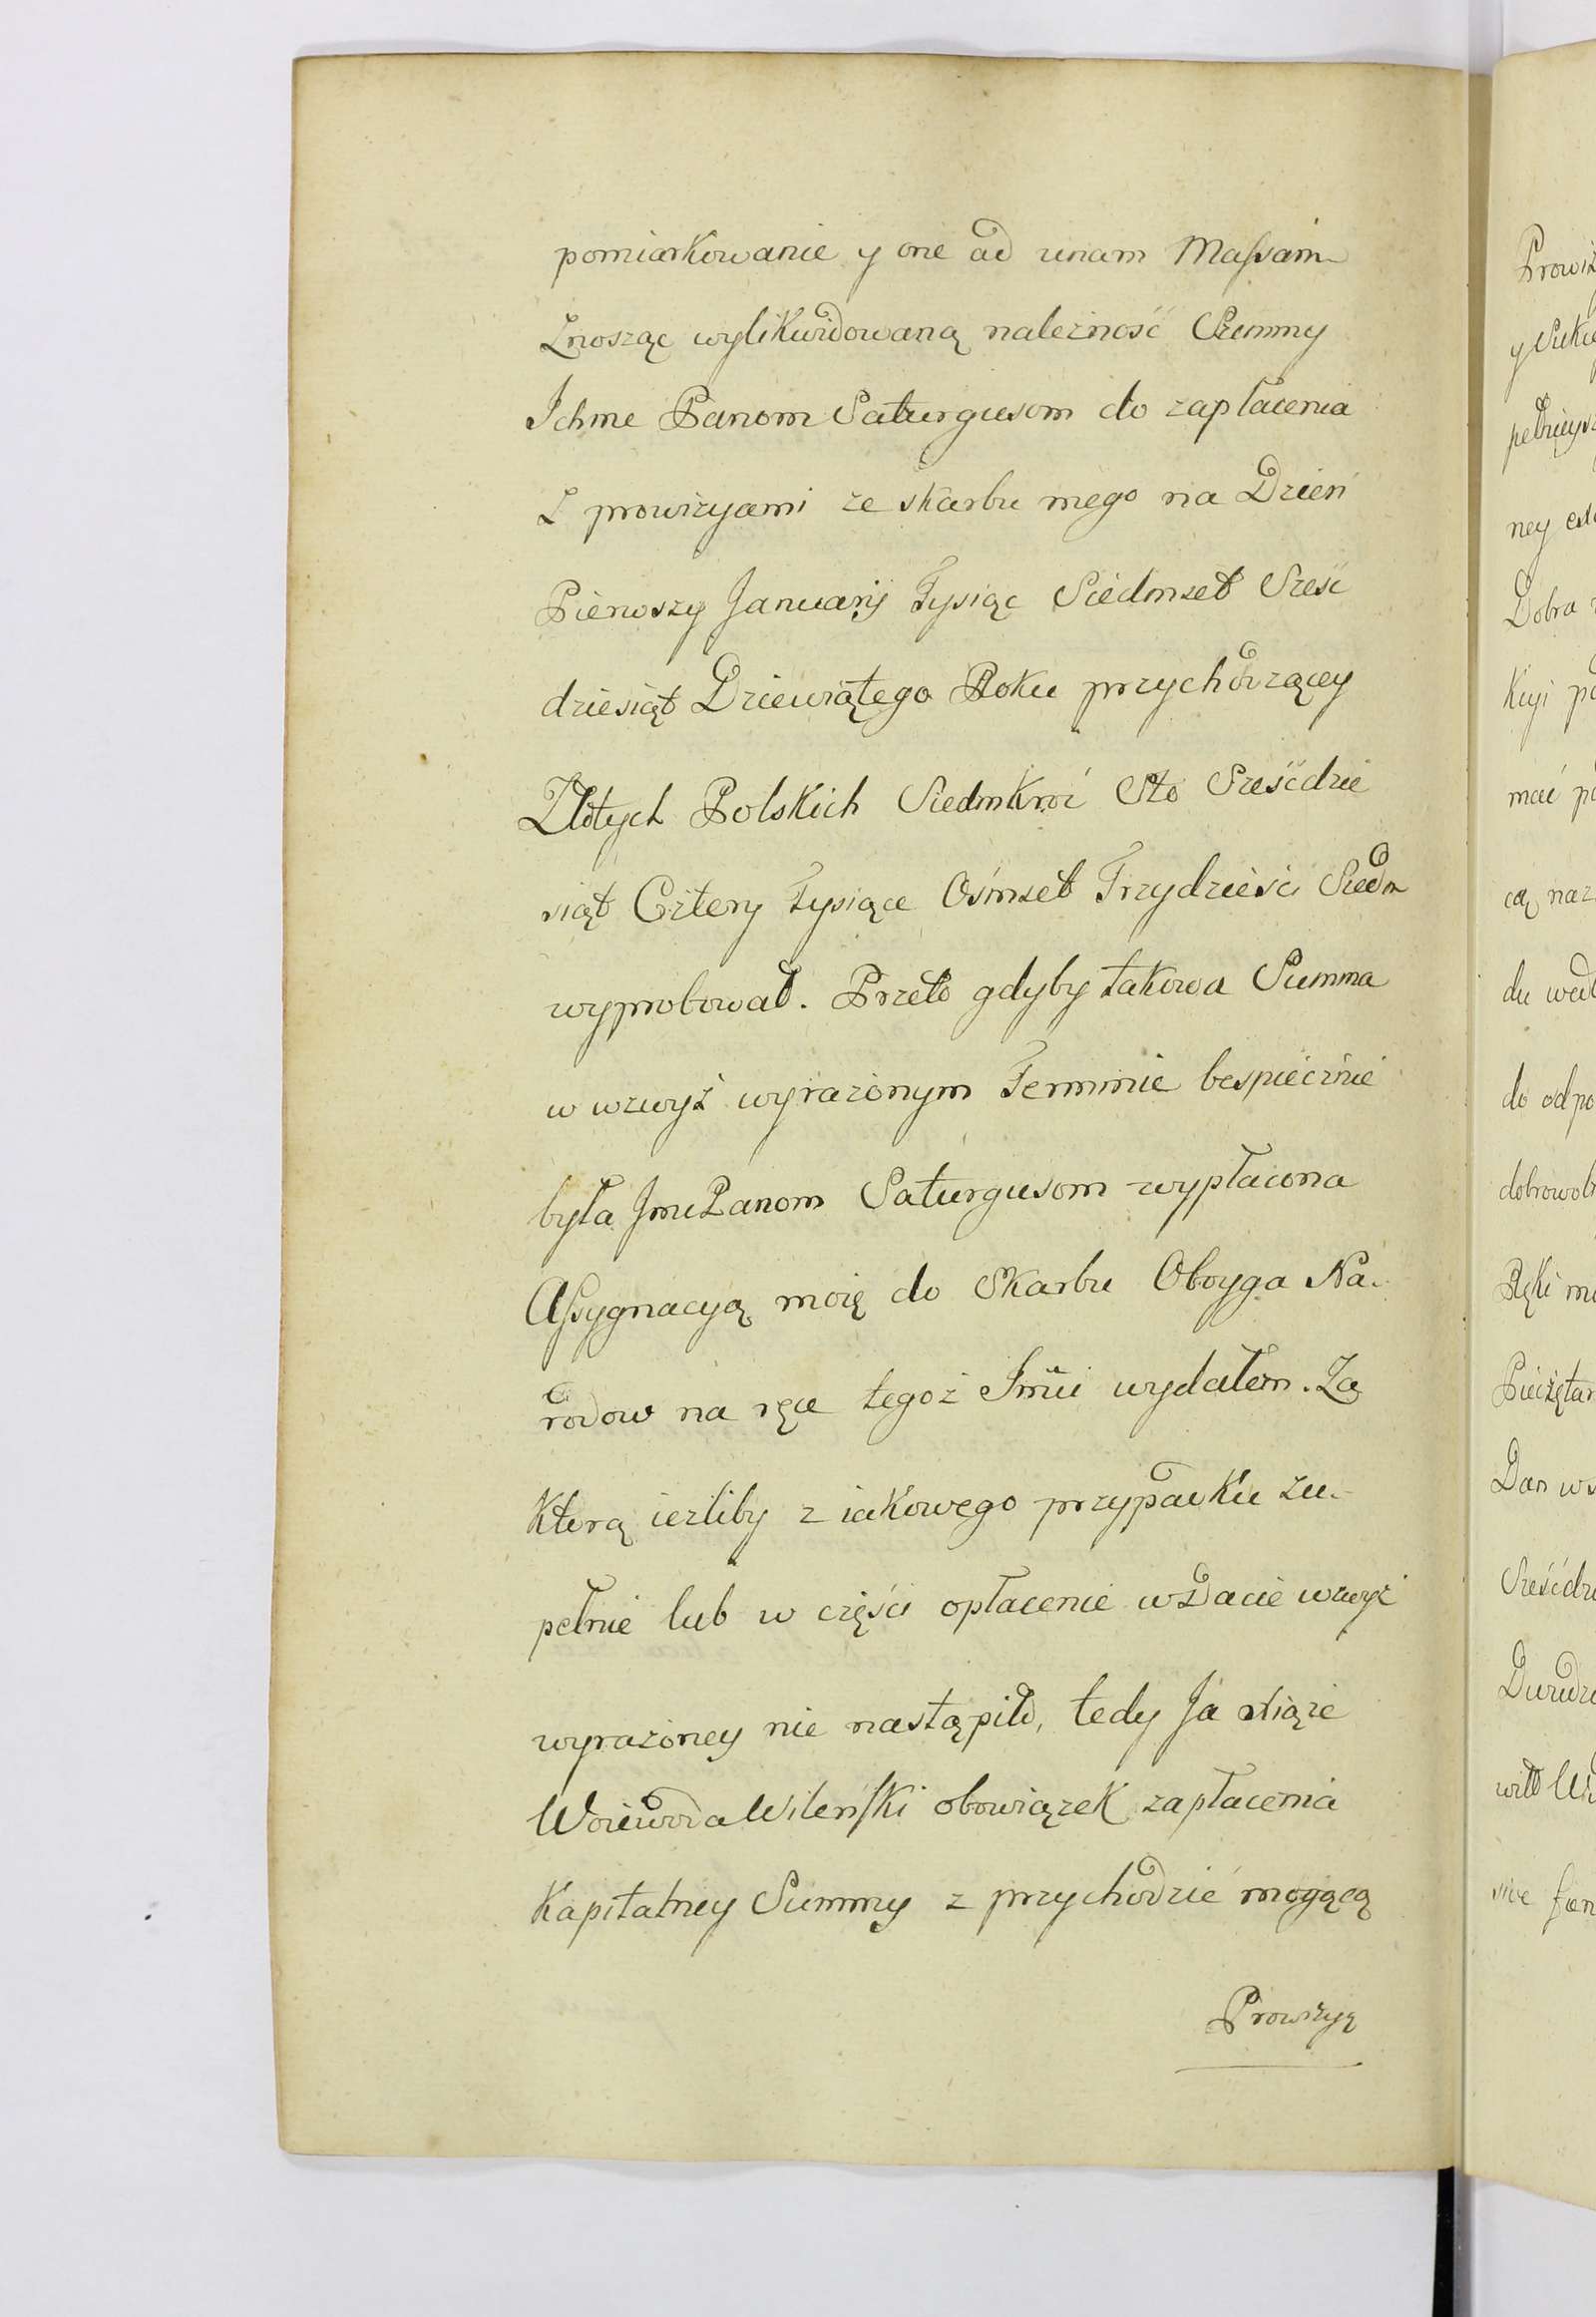 pomiarkowanie y one ad unam Massam
Znosząc wylikwidowaną należność Summy
Ichme Panom Saturgusom do zapłacenia
Z prowizyami ze skarbu mego na Dzień
Pierwszy Januarij Tysiąc Siedmset Sześć
dziesiąt Dziewiątego Roku przychodzącey
Złotych Polskich Siedmkroć Sto Sześćdzie
siąt Cztery Tysiące Ośmset Trzydzieści Siedm
wyprobował. Przeto gdyby takowa Summa
w wzwyż wyrażonym Terminie bespiecznie
była Jmc Panom Saturgusom wypłacona
Assygnacyą moię do Skarbu Oboyga Na-
rodow na ręce tegoż Jmci wydałem. Za
Którą ieżliby z iakowego przypadku zu-
pełnie lub w części opłacenie w Dacie wzwyż
wyrażoney nie nastąpiło, tedy Ja Xiąże
Woiewoda Wileński obowiązek zapłacenia
Kapitalney Summy z przychodzić mogącą
Prowizyą
Prowiz
y Sukc
pełnieysz
ney
Dobra
Kuyi po
mać po
cą naz
du wed
do odpo
dobrowol
Ręki m
Pieczętar
Dan w
Sześćdzi
Dwudz